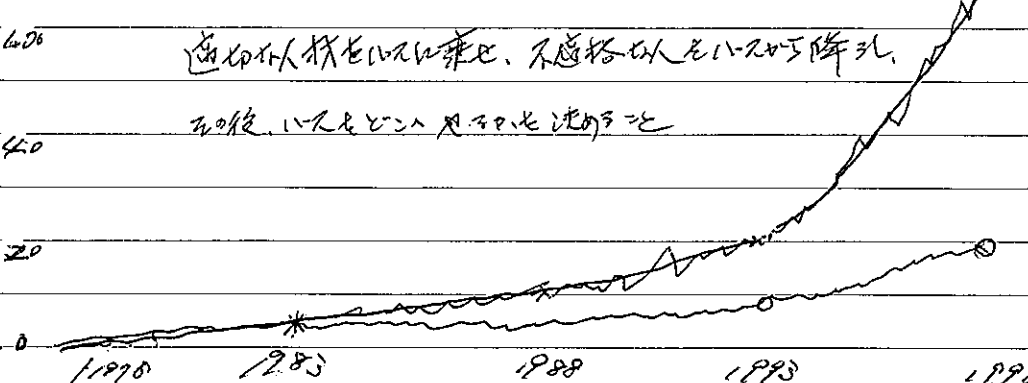 60
適切な人材をバスに乗せ、不適格な人をバスから降ろし、
その後、バスをどこへ やるかを 決めること
40
20
0
1983
1988
1993